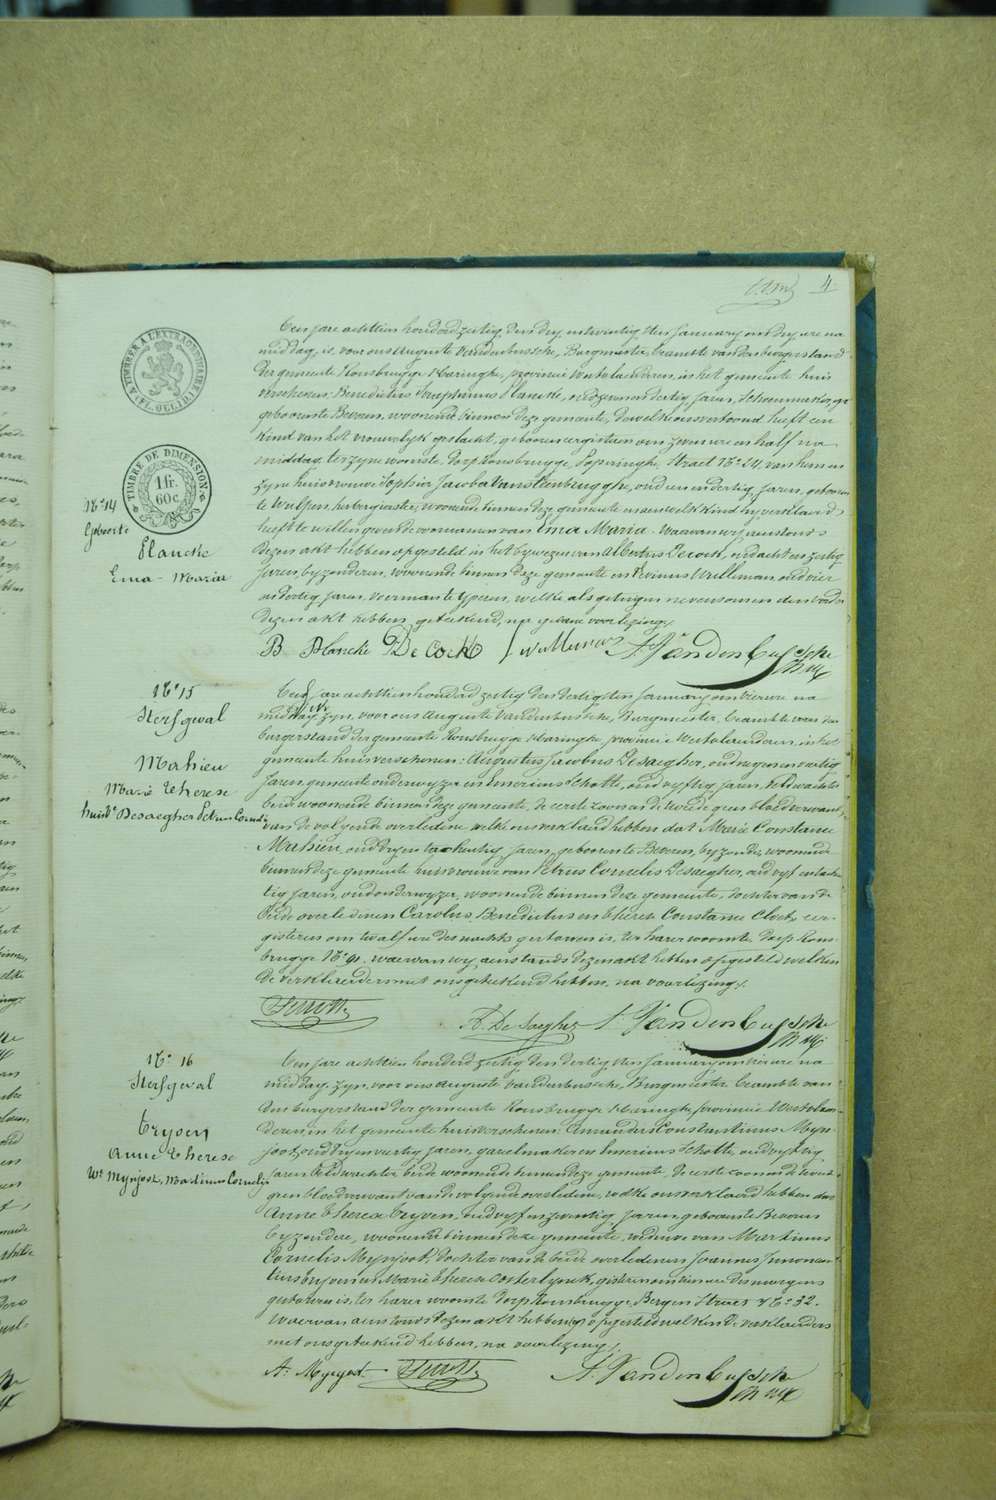 4
TIMBRE A L'EXTRAORDINAIRE
(Fl. OCCID.)
TIMBRE DE DIMENSION
1 fr.
60 c.
N° 14
Geboorte
Plancke
Ema - Maria
Een jare achttien honderd zestig, den dry entwintig sten January om dry ure na
middag, is, voor ons Auguste Vandenbussche, Burgmeester, beambte van den burgerstand
der gemeente Rousbrugge Haringhe, provincie Westvlaanderen, in het gemeente huis
verschenen: Benedictus Plancke, oud jaren, Schoenmaker,
geboren te Beveren, woonende binnen deze gemeente, dewelke ons vertoond heeft een
kind van het vrouwelyk geslacht, geboren eergisteren om zeven ure en half na
middag, ter zyne woonste, dorp Rousbrugge, Poperinghe Straet N° 24, van hem en
zyne huisvrouwe Sophia Jacoba Vansteenbrugghe, oud en dertig jaren, geboren
te Wulpen, herbergierster, woonende binnen deze gemeente en aen welk kind hy verklaerd
heeft te willen geven de voornamen van Ema Maria. Waervan wy aenstonds
dezen akt hebben opgesteld in het bywezen van Albertus Decock, oud acht en zestig
jaren, byzonderen, woonende binnen deze gemeente en Livinus Wulleman, oud vier
en dertig jaren, veerman te Yperen, welke als getuigen nevens ons en den vader
dezen akt hebben geteekend, na gedane voorlezing.
B Plancke De Cock L Wulleman A. Vandenbussche
N° 15
Sterfgeval
Mahieu
Marie Therese
huisv. Desaegher Petrus Cornelis
Een jare achttien honderd zestig den dertigsten January om vier ure na
middag, zyn, voor ons Auguste Vandenbussche, Burgmeester, beambte van den
burgerstand der gemeente Rousbrugge Haringhe, provincie Westvlaanderen, in het
gemeente huis verschenen: Augustus Jacobus Desaegher, oud negen en veertig
jaren, gemeente onderwyzer en Emerinus Schotte, oud vyftig jaren, Veldwachter
beide woonende binnen deze gemeente, de eerste zoon en de tweede geen bloedverwant
van de volgende overledene welke ons verklaerd hebben dat Marie Constance
Mahieu, oud dry en tachentig jaren, geboren te Beveren, byzondere, woonende
binnen deze gemeente huisvrouwe van Petrus Cornelis Desaegher, oud vyf en tachen-
tig jaren, oud onderwyzer, woonende binnen deze gemeente, dochter van de
beide overledenen Carolus Benedictus en Therese Constance Cloet, eer-
gisteren om twalf ure des nachts gestorven is, ter harer woonste, dorp Rous-
brugge N° 91. waervan wy aenstonds dezen akt hebben opgesteld welken
de verklaerders met ons geteekend hebben, na voorlezing.
Schotte A. De Saegher A. Vandenbussche
N° 16
Sterfgeval
Tryoen
Anne Therese
We Mynjoot, Martinus Cornelis
Een jare achttien honderd zestig den dertigsten January om vier ure na
middag, zyn, voor ons Auguste Vandenbussche, Burgmeester beambte van
den burgerstand der gemeente Rousbrugge Haringhe, provincie Westvlaen-
deren, in het gemeente huis verschenen: Amandus Constantinus Myn-
joot, oud dry en veertig jaren, garelmaker en Emerinus Schotte, oud vyftig
jaren Veldwachter beide woonende binnen deze gemeente, de eerste zoon en de tweede
geen bloedverwant van de volgende overledene, welke ons verklaerd hebben dat
Anne Theresa Tryoen, oud vyf en zeventig jaren, geboren te Beveren
byzondere, woonende binnen deze gemeente, weduwe van Martinus
Cornelis Mynjoot, dochter van de beide overledenen Joannes
Tryoen en Marie Therese Oosterlynck, gisteren om tien ure des morgens
gestorven is, ter harer woonste dorp Rousbrugge, Bergen Straet N° 32.
Waervan aenstonds dezen akt hebben wy opgesteld welken de verklaerders
met ons geteekend hebben, na voorlezing.
A. Mynjoot Schotte A. Vandenbussche